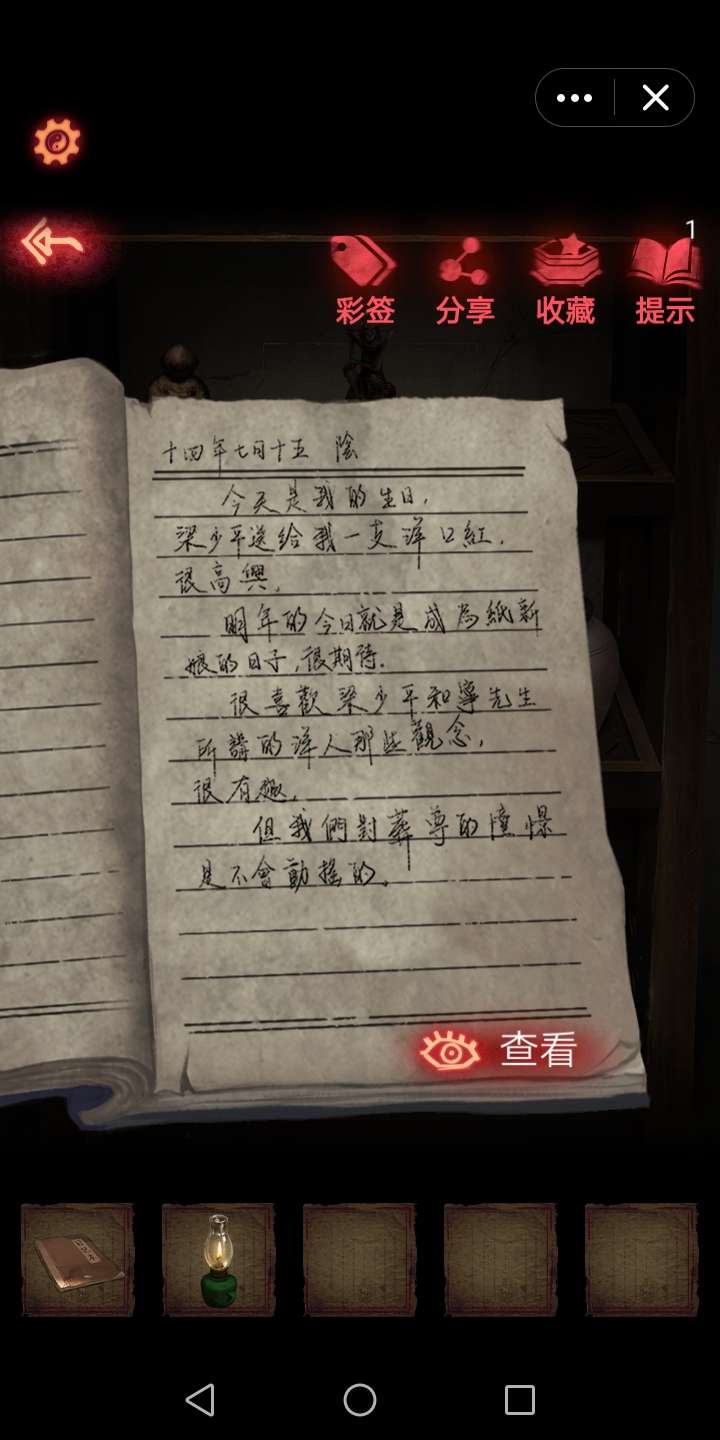 1
彩签 分享 收藏 提示
十四年七月十五 陰
今天是我的生日,
梁少平送給我一支洋口紅,
很高興,
明年的今日就是成為紙新
娘的日子,很期待.
很喜歡梁少平和寧先生
所講的洋人那些觀念,
很有趣,
但我們對葬尊的憧憬
是不會動搖的。
查看